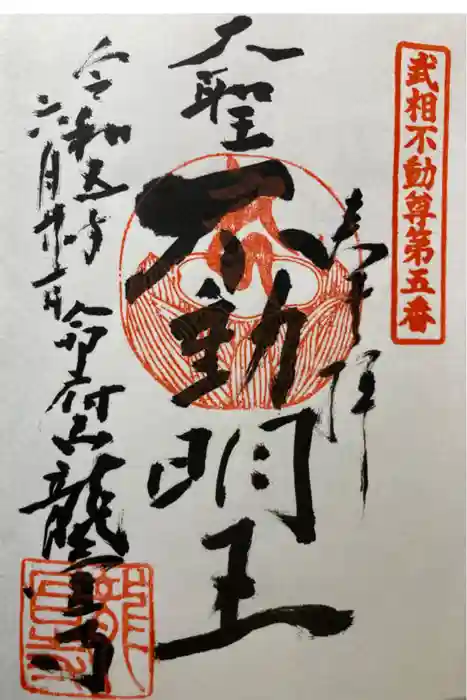 武相不動尊第五番
奉拝
大聖
不動明王
令和五年
六月廿一日 命付山 龍雲寺